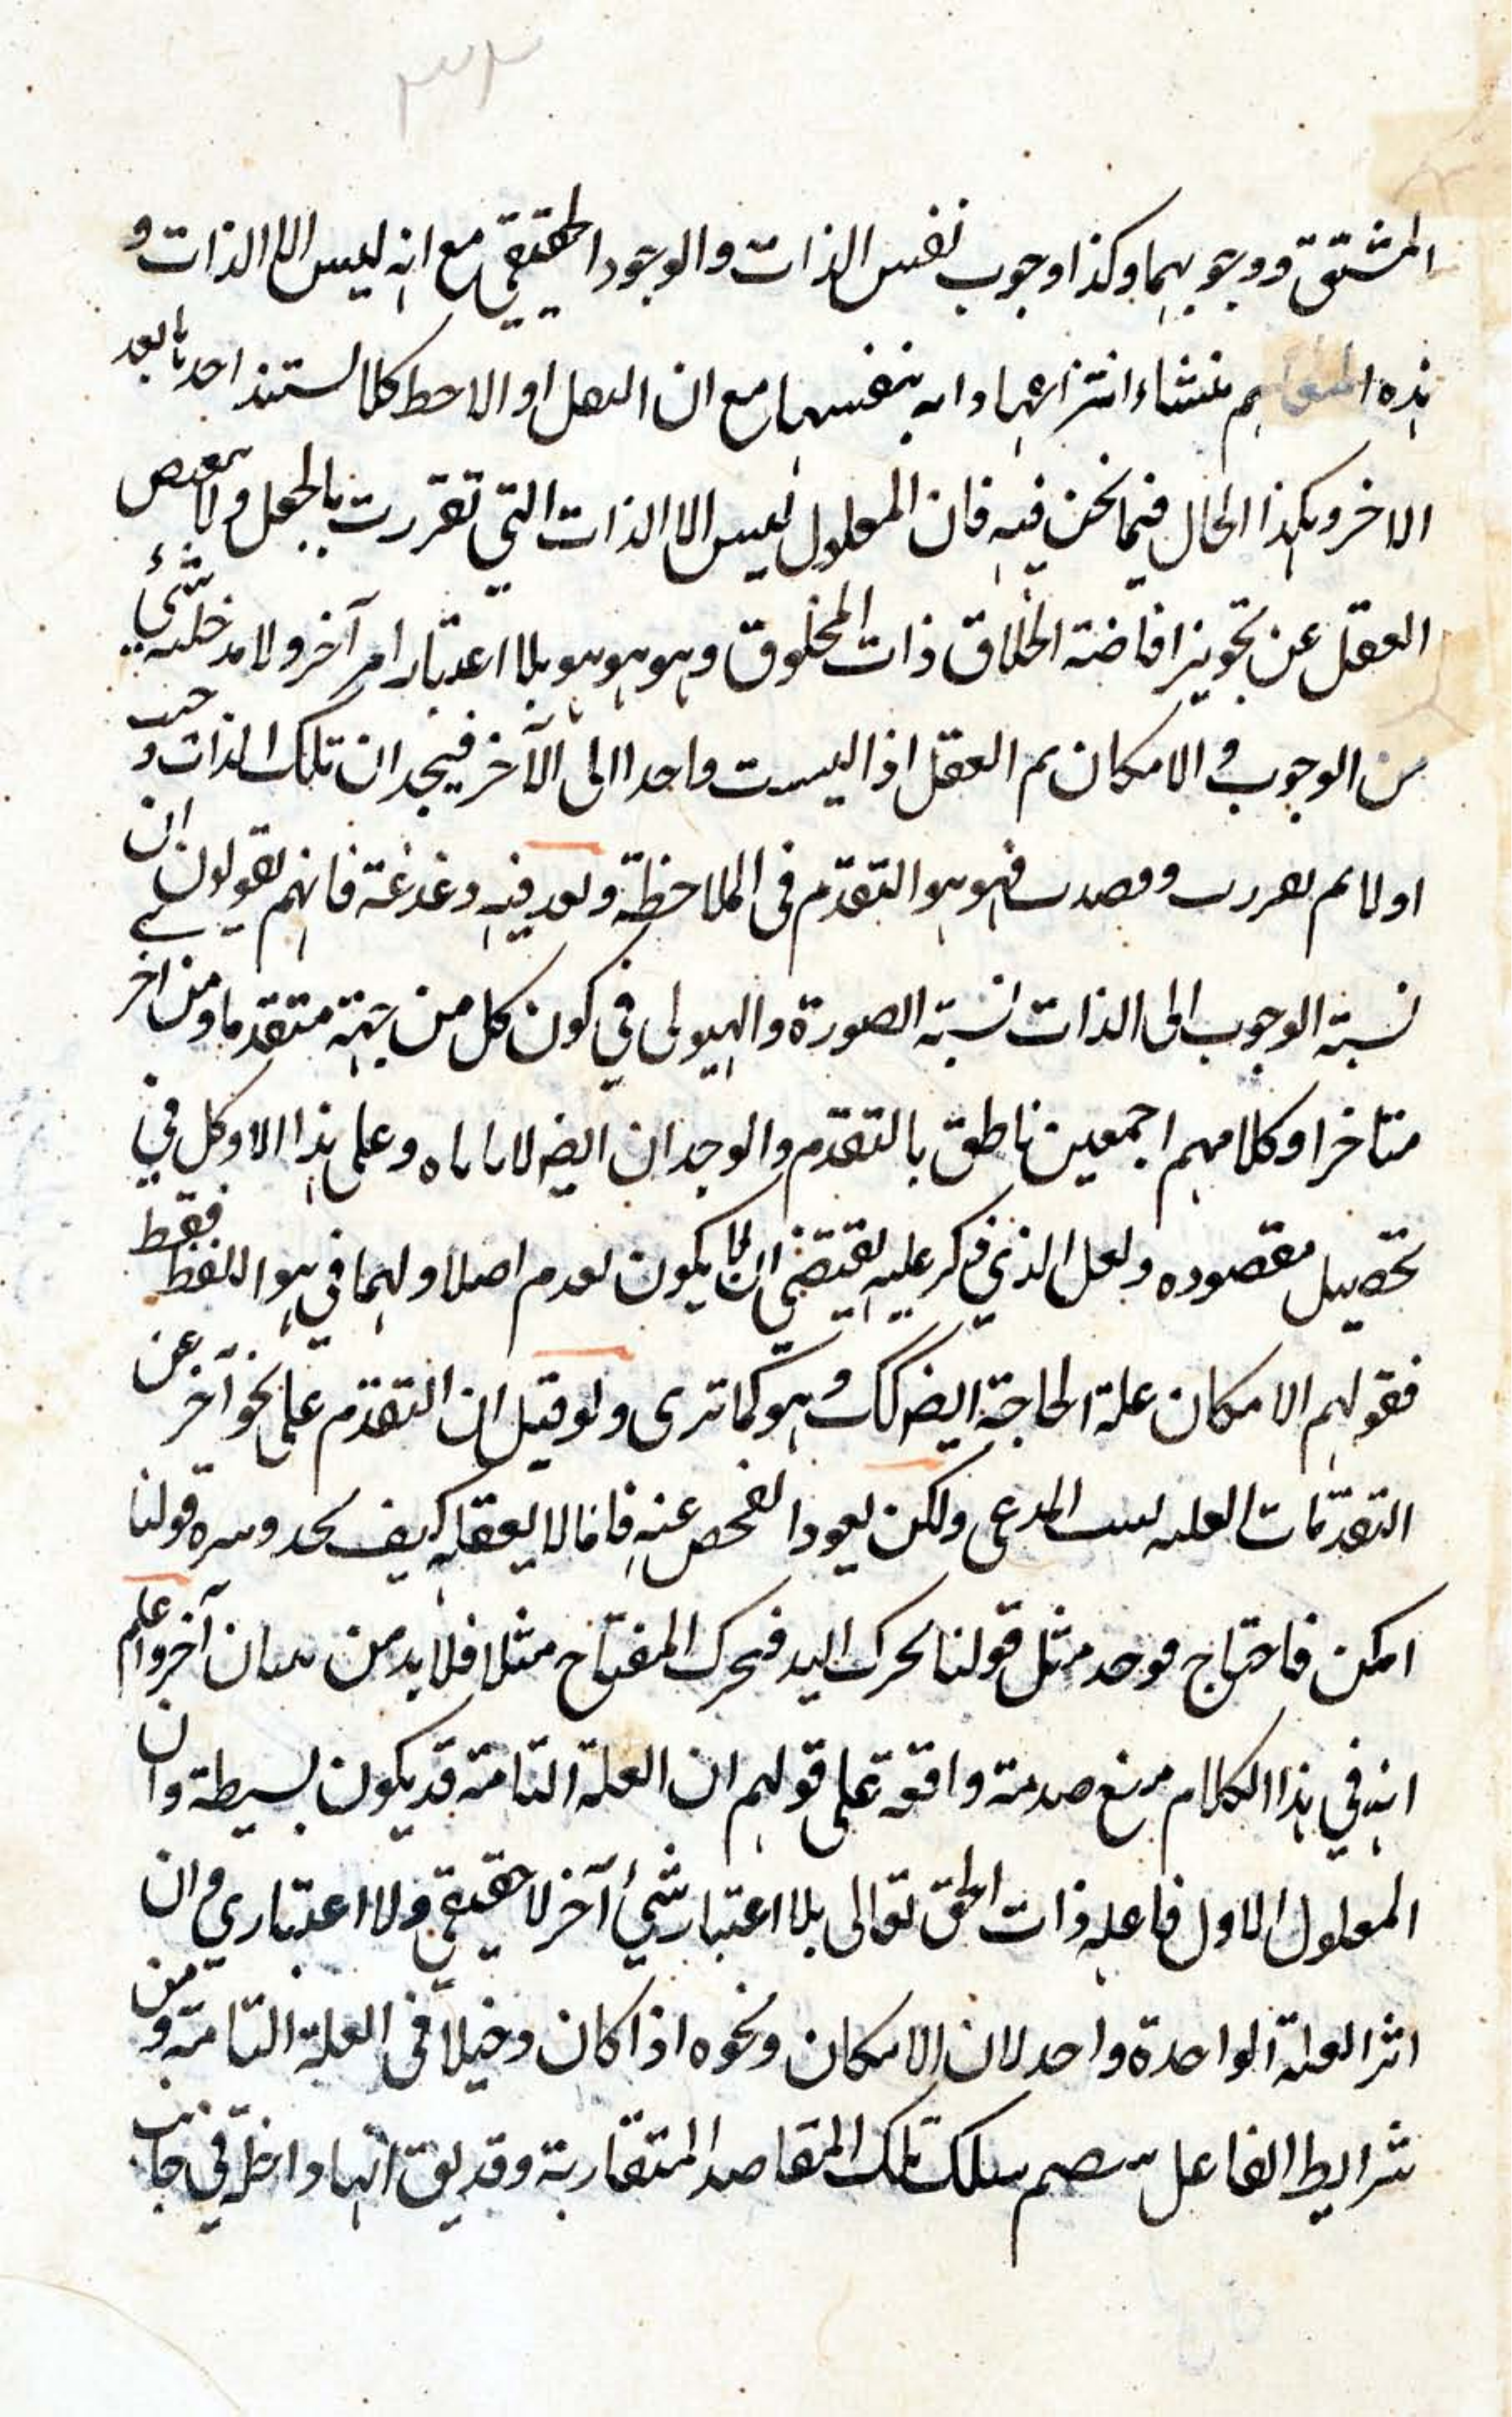 المشتق ووجوبهما وكذا وجوب نفس الذات والوجود الحقيقي مع انه ليس الا الذات و
هذه المفاهيم منشاء انتزاعها بنفسها مع ان او الاحط كلا يستند احدها بعد
الاخر وهكذا الحال فيما نحن فيه فان المعلول ليس الا الذات التي تقررت بالجعل ولا
العقل عن تجويز افاضة الخلاق ذات المخلوق وهو هو هو بلا اعتبار امر آخر ولا مدخلية شئ
من الوجوب والامكان ثم العقل اذا واحدا الى الآخر فيجد ان تلك الذات و
اولا ثم فهو هو التقدم في الملاحظة وبعد فيه دغدغة فانهم يقولون ان
نسبة الوجوب الى الذات نسبة الصورة والهيولى في كون كل من جهة متقدما ومن اخر
متاخرا وكلامهم اجمعين ناطق بالتقدم والوجدان ايض لا ياباه وعلى هذا لا وكل في
تحصيل مقصوده ولعل الذي ذكر عليه يقتضي ان لا يكون تقدم اصلا ولهما في هو اللفظ فقط
فقولهم الامكان علة الحاجة ايض كك وهو كما ترى ولو قيل ان التقدم على نحو آخر عن
التقدمات العلية المدعى ولكن يعود الفحص عنه فاما لا يعقل كيف يحد وسره قولنا
امكن فاحتاج فوجد مثل قولنا تحرك اليد فتحرك المفتاح مثلا فلا بد من بيان آخر واعلم
انه في هذا الكلام صدمة واقعة على قولهم ان العلة التامة قد يكون بسيطة وان
المعلول الاول فاعله ذات الحق تعالى بلا اعتبار شئ آخر لا حقيقي ولا اعتباري وان
اثر العلة الواحدة واحد لان الامكان ونحوه اذا كان دخيلا في العلة التامة ومن
شرايط الفاعل تلك المقاصد المتقاربة وقد يق انها داخلة في جانب